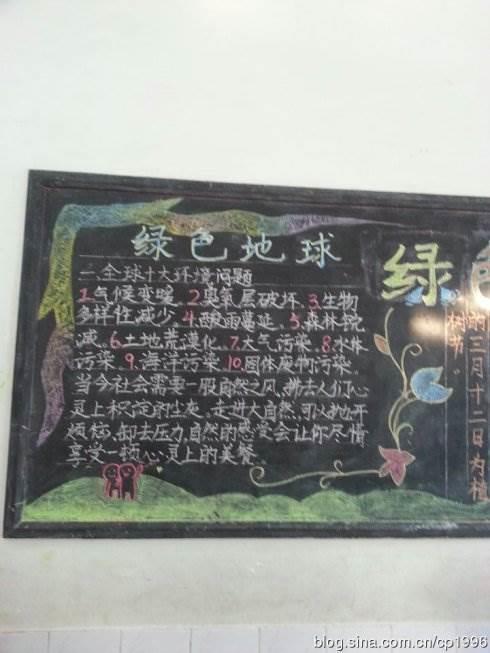 绿色地球
二、全球十大环境问题
1.气候变暖、2臭氧层破坏、3.生物
多样性减少4.酸雨蔓延、5.森林锐
减、6.土地荒漠化、7.大气污染、8.水体
污染、9.海洋污染、10.固体废物污染。
当今社会需要一股自然之风,拂去人们心
灵上积淀的尘灰。走进大自然,可以抛开
烦恼,卸去压力,自然的感觉会让你尽情
享受一顿心灵上的美餐。
绿色
的三月十二日为植
树节。
blog.sina.com.cn/cp1996